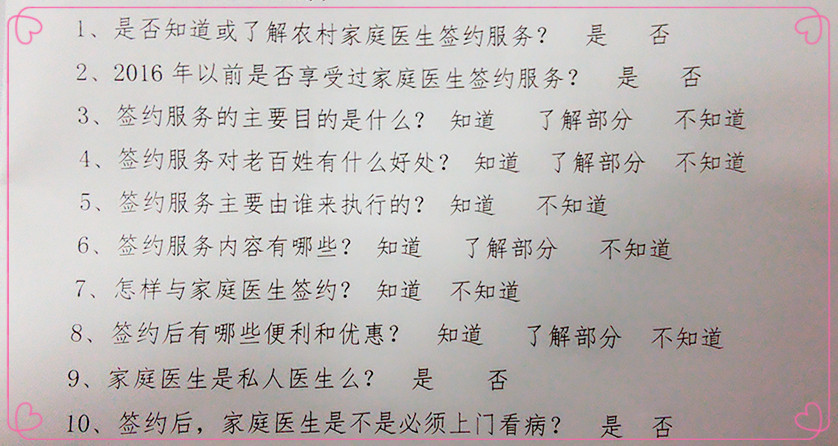 1、是否知道或了解农村家庭医生签约服务? 是 否
2、2016 年以前是否享受过家庭医生签约服务? 是 否
3、签约服务的主要目的是什么? 知道 了解部分 不知道
4、签约服务对老百姓有什么好处? 知道 了解部分 不知道
5、签约服务主要由谁来执行的? 知道 不知道
6、签约服务内容有哪些? 知道 了解部分 不知道
7、怎样与家庭医生签约? 知道 不知道
8、签约后有哪些便利和优惠? 知道 了解部分 不知道
9、家庭医生是私人医生么? 是 否
10、签约后，家庭医生是不是必须上门看病? 是 否